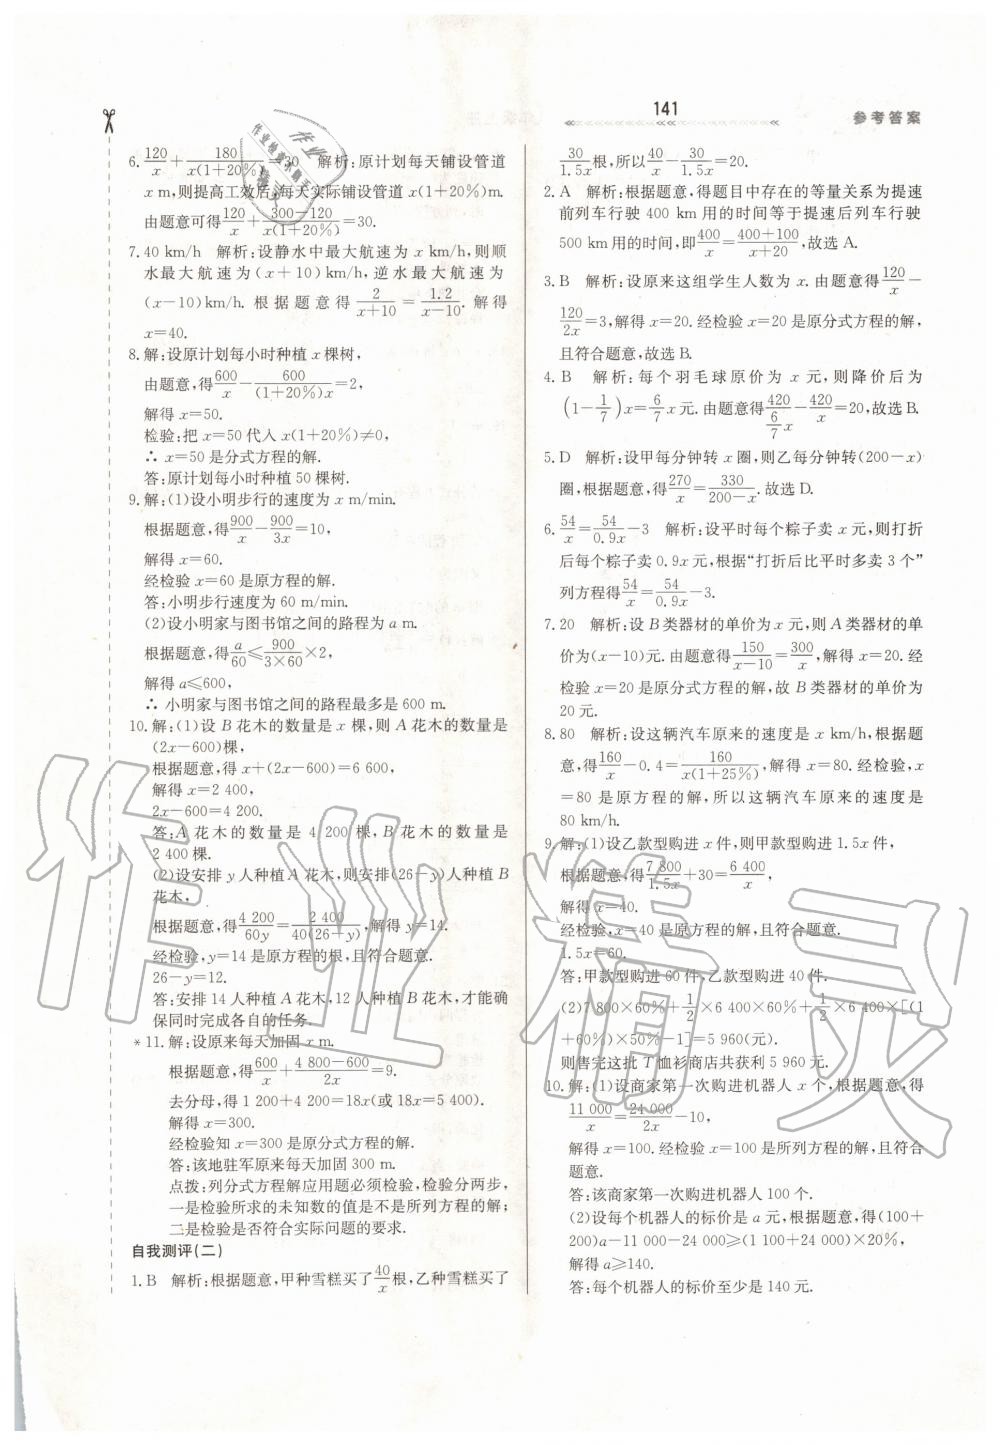 141
参考答案
6. 120/x + 180/x(1+20%) = 30　解析:原计划每天铺设管道
x m,则提高工效后,每天实际铺设管道(1+20%)x m.
由题意可得 120/x + (300-120)/((1+20%)x) = 30.
7. 40 km/h　解析:设静水中最大航速为 x km/h,则顺
水最大航速为(x+10)km/h,逆水最大航速为
(x-10)km/h. 根据题意得 2/(x+10) = 1.2/(x-10). 解得
x=40.
8. 解:设原计划每小时种植 x 棵树,
由题意,得 600/x - 600/((1+20%)x) = 2,
解得 x=50.
检验:把 x=50 代入 x(1+20%)≠0,
∴ x=50 是分式方程的解.
答:原计划每小时种植 50 棵树.
9. 解:(1)设小明步行的速度为 x m/min.
根据题意,得 900/x - 900/3x = 10,
解得 x=60.
经检验 x=60 是原方程的解.
答:小明步行速度为 60 m/min.
(2)设小明家与图书馆之间的路程为 a m.
根据题意,得 a/60 ≤ 900/(3×60) ×2,
解得 a≤600,
∴ 小明家与图书馆之间的路程最多是 600 m.
10. 解:(1)设 B 花木的数量是 x 棵,则 A 花木的数量是
(2x-600)棵,
根据题意,得 x+(2x-600)=6 600,
解得 x=2 400,
2x-600=4 200.
答:A 花木的数量是 4 200 棵,B 花木的数量是
2 400 棵.
(2)设安排 y 人种植 A 花木,则安排(26-y)人种植 B
花木,
根据题意,得 4 200/60y = 2 400/40(26-y), 解得 y=14.
经检验,y=14 是原方程的根,且符合题意.
26-y=12.
答:安排 14 人种植 A 花木,12 人种植 B 花木,才能确
保同时完成各自的任务.
*11. 解:设原来每天加固 x m.
根据题意,得 600/x + (4 800-600)/2x = 9.
去分母,得 1 200+4 200=18x(或 18x=5 400).
解得 x=300.
经检验知 x=300 是原分式方程的解.
答:该地驻军原来每天加固 300 m.
点拨:列分式方程解应用题必须检验,检验分两步,
一是检验所求的未知数的值是不是所列方程的解;
二是检验是否符合实际问题的要求.
自我测评(二)
1. B　解析:根据题意,甲种雪糕买了 40/x 根,乙种雪糕买了
30/1.5x 根,所以 40/x - 30/1.5x = 20.
2. A　解析:根据题意,得题目中存在的等量关系为提速
前列车行驶 400 km 用的时间等于提速后列车行驶
500 km 用的时间,即 400/x = (400+100)/(x+20), 故选 A.
3. B　解析:设原来这组学生人数为 x. 由题意得 120/x -
120/2x = 3,解得 x=20. 经检验 x=20 是原分式方程的解,
且符合题意,故选 B.
4. B　解析:每个羽毛球原价为 x 元,则降价后为
(1-1/7)x = 6/7 x 元. 由题意得 420/(6/7 x) - 420/x = 20,故选 B.
5. D　解析:设甲每分钟转 x 圈,则乙每分钟转(200-x)
圈,根据题意,得 270/x = 330/(200-x). 故选 D.
6. 54/x = 54/0.9x - 3　解析:设平时每个粽子卖 x 元,则打折
后每个粽子卖 0.9x 元,根据“打折后比平时多卖 3 个”
列方程得 54/x = 54/0.9x - 3.
7. 20　解析:设 B 类器材的单价为 x 元,则 A 类器材的单
价为(x-10)元. 由题意得 150/(x-10) = 300/x, 解得 x=20. 经
检验 x=20 是原分式方程的解,故 B 类器材的单价为
20 元.
8. 80　解析:设这辆汽车原来的速度是 x km/h,根据题
意,得 160/x - 0.4 = 160/x(1+25%), 解得 x=80. 经检验,x
=80 是原方程的解,所以这辆汽车原来的速度是
80 km/h.
9. 解:(1)设乙款型购进 x 件,则甲款型购进 1.5x 件,
根据题意,得 7 800/1.5x + 30 = 6 400/x,
解得 x=40.
经检验,x=40 是原方程的解,且符合题意.
1.5x=60.
答:甲款型购进 60 件,乙款型购进 40 件.
(2)7 800×60%+1/2×6 400×60%+1/2×6 400×[(1
+60%)×50%-1]=5 960(元).
则售完这批 T 恤衫商店共获利 5 960 元.
10. 解:(1)设商家第一次购进机器人 x 个,根据题意,得
11 000/x = 24 000/2x - 10,
解得 x=100. 经检验 x=100 是所列方程的解,且符合
题意.
答:该商家第一次购进机器人 100 个.
(2)设每个机器人的标价是 a 元,根据题意,得(100+
200)a-11 000-24 000≥(11 000+24 000)×20%,
解得 a≥140.
答:每个机器人的标价至少是 140 元.
作业精灵